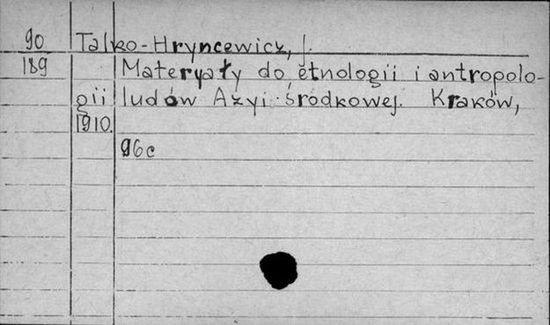 90 Talko-Hryncewicz, J.
189 Materyały do etnologii i antropolo-
gii ludów Azyi środkowej. Kraków,
1910.
96c